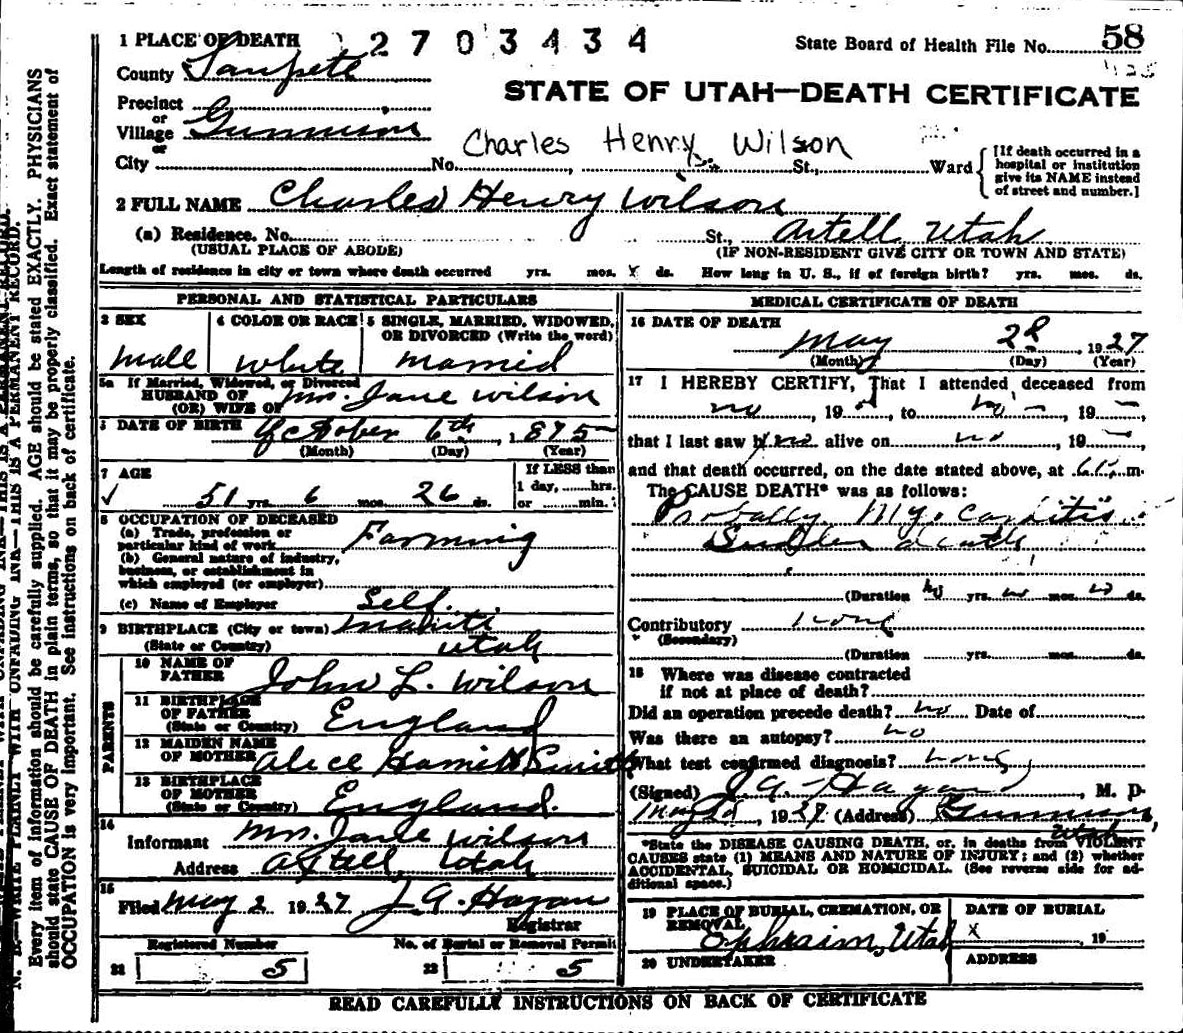 1 PLACE OF DEATH 2703434 State Board of Health File No. 58
County Sanpete
STATE OF UTAH—DEATH CERTIFICATE
Precinct
or
Village Gunnison
or
City No. Charles Henry Wilson St., Ward
[If death occurred in a
hospital or institution
give its NAME instead
of street and number.]
2 FULL NAME Charles Henry Wilson
(a) Residence. No. St., Axtell, Utah
(USUAL PLACE OF ABODE) (IF NON-RESIDENT GIVE CITY OR TOWN AND STATE)
Length of residence in city or town where death occurred yrs. mos. ds. How long in U. S., if of foreign birth? yrs. mos. ds.
PERSONAL AND STATISTICAL PARTICULARS
3 SEX
Male
4 COLOR OR RACE
White
5 SINGLE, MARRIED, WIDOWED,
OR DIVORCED (Write the word)
Married
5a If Married, Widowed, or Divorced
HUSBAND OF
(OR) WIFE OF Mrs. Jane Wilson
DATE OF BIRTH October 6th, 1875
(Month) (Day) (Year)
7 AGE
51 yrs. 6 mos. 26 ds.
If LESS than
1 day, hrs.
or min.
8 OCCUPATION OF DECEASED
(a) Trade, profession or
particular kind of work Farming
(b) General nature of industry,
business, or establishment in
which employed (or employer)
(c) Name of Employer Self.
9 BIRTHPLACE (City or town) Manti
(State or Country) Utah
PARENTS
10 NAME OF
FATHER John L. Wilson
11 BIRTHPLACE
OF FATHER
(State or Country) England
12 MAIDEN NAME
OF MOTHER Alice Smith
13 BIRTHPLACE
OF MOTHER
(State or Country) England.
14
Informant Mrs. Jane Wilson
Address Axtell, Utah
15
Filed May 2 1927 J A Hagan
Registrar
Registered Number
22 5
No. of Burial or Removal Permit
23 5
MEDICAL CERTIFICATE OF DEATH
16 DATE OF DEATH
May 28, 1927
(Month) (Day) (Year)
17 I HEREBY CERTIFY, That I attended deceased from
no, 19 –, to no –, 19 –,
that I last saw him alive on no, 19 –
and that death occurred, on the date stated above, at m.
The CAUSE DEATH* was as follows:
Probally Myocarditis
Sudden death
(Duration no yrs. no mos. no ds.
Contributory None
(Secondary)
(Duration yrs. mos. ds.
18 Where was disease contracted
if not at place of death?
Did an operation precede death? no Date of
Was there an autopsy? no
What test confirmed diagnosis? none
(Signed) J. A. Hagan, M. D.
May, 1927 (Address) Gunnison,
Utah
*State the DISEASE CAUSING DEATH, or, in deaths from VIOLENT
CAUSES state (1) MEANS AND NATURE OF INJURY; and (2) whether
ACCIDENTAL, SUICIDAL OR HOMICIDAL. (See reverse side for ad-
ditional space.)
19 PLACE OF BURIAL, CREMATION, OR
REMOVAL
Ephraim, Utah
DATE OF BURIAL
X, 19
20 UNDERTAKER
ADDRESS
READ CAREFULLY INSTRUCTIONS ON BACK OF CERTIFICATE
N. B.—WRITE PLAINLY WITH UNFADING INK—THIS IS A PERMANENT RECORD.
Every item of information should be carefully supplied. AGE should be stated EXACTLY. PHYSICIANS
should state CAUSE OF DEATH in plain terms, so that it may be properly classified. Exact statement of
OCCUPATION is very important. See instructions on back of certificate.